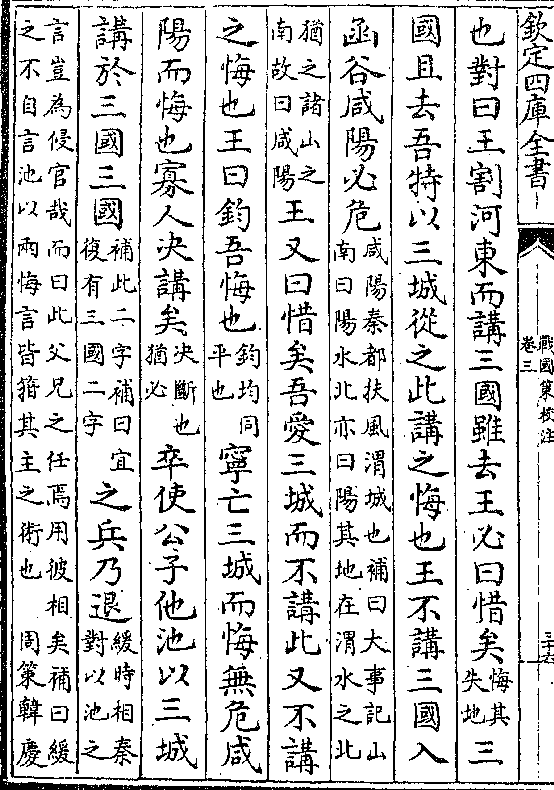 欽定四庫全書
戰國策校注
卷三
也對曰王割河東而講三國雖去王必曰惜矣悔其失地三
國且去吾特以三城從之此講之悔也王不講三國入
函谷咸陽必危咸陽秦都扶風渭城也補曰大事記山南曰陽水北亦曰陽其地在渭水之北
猶之諸山之南故曰咸陽王又曰惜矣吾愛三城而不講此又不講
之悔也王曰鈞吾悔也鈞均同平也寧亡三城而悔無危咸
陽而悔也寡人决講矣决斷也猶必卒使公子他池以三城
講於三國三國補此二字補曰宜復有三國二字之兵乃退緩時相秦對以池之
言豈為侵官哉而曰此父兄之任焉用彼相矣補曰緩之不自言池以兩悔言皆箝其主之術也周策韓慶